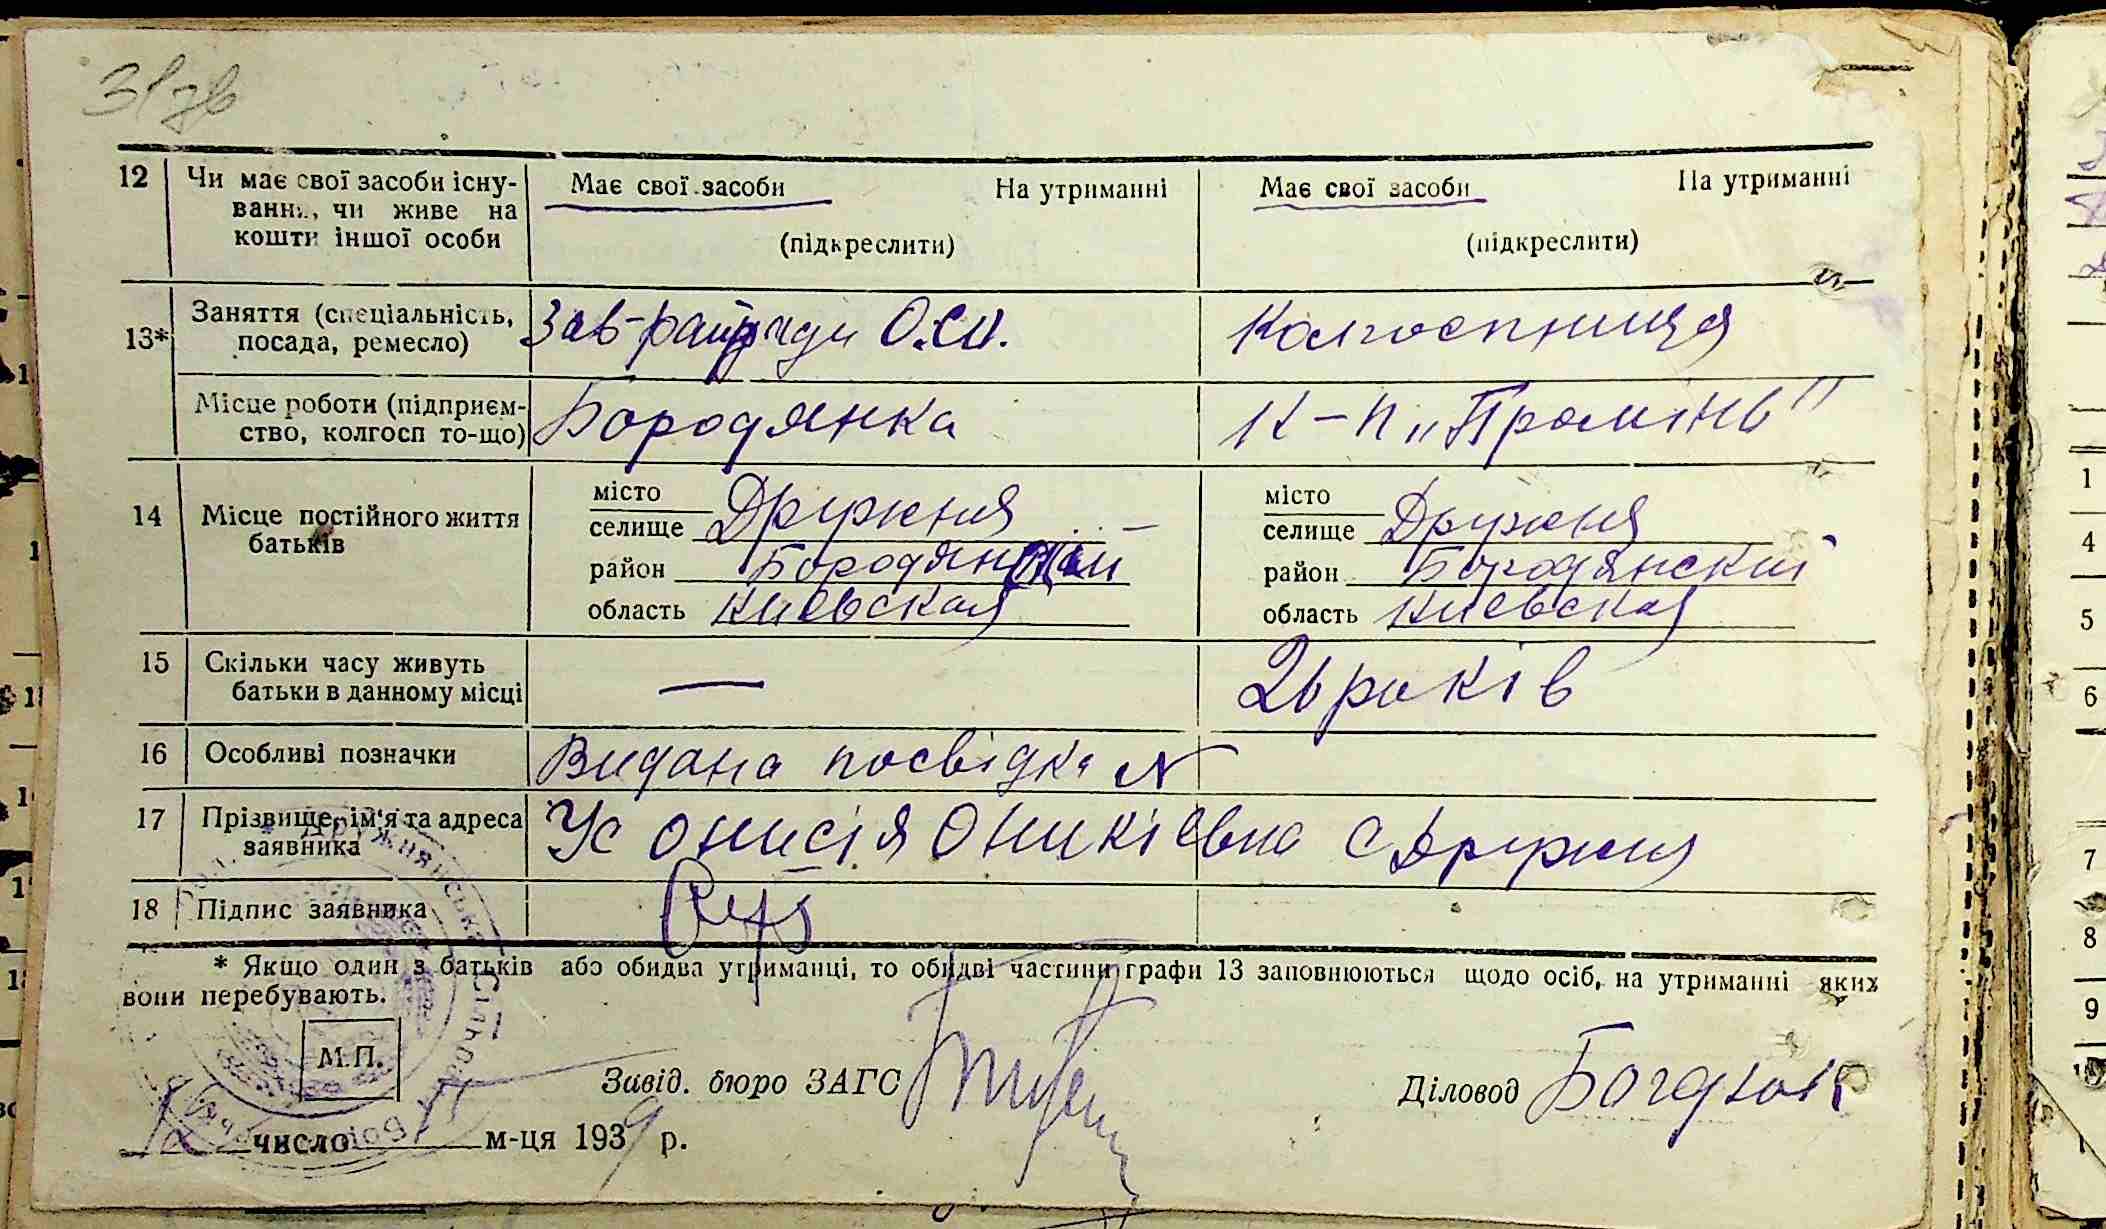 31 зв
12 Чи має свої засоби існу- Має свої засоби На утриманні Має свої засоби На утриманні
вання, чи живе на
кошти іншої особи (підкреслити) (підкреслити)
13* Заняття (спеціальність, Зав-райради О.С.О. Колгоспниця
посада, ремесло)
Місце роботи (підприєм- Бородянка К-п „Промінь"
ство, колгосп то-що)
14 Місце постійного життя місто місто
батьків селище Дружня селище Дружня
район Бородянский район Бородянский
область Киевская область Киевская
15 Скільки часу живуть — 26 років
батьки в данному місці
16 Особливі позначки Видана посвідка N
17 Прізвище, ім'я та адреса Ус Онисія Оникіевна с Дружня
заявника
18 Підпис заявника
* Якщо один з батьків або обидва утриманці, то обидві частини графи 13 заповнюються щодо осіб, на утриманні яких
вони перебувають.
М.П.
Завід. бюро ЗАГС Діловод Богдюк
12 число м-ця 1939 р.